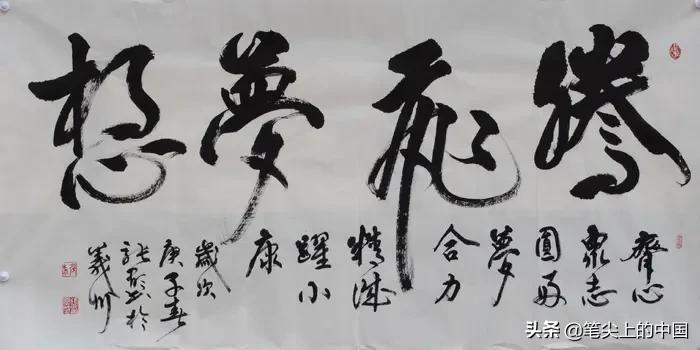 騰飛夢想
齊心
衆志
圓好
夢
合力
精誠
躍小
康
歲次
庚子春
張 書於
義州
头条 @笔尖上的中国